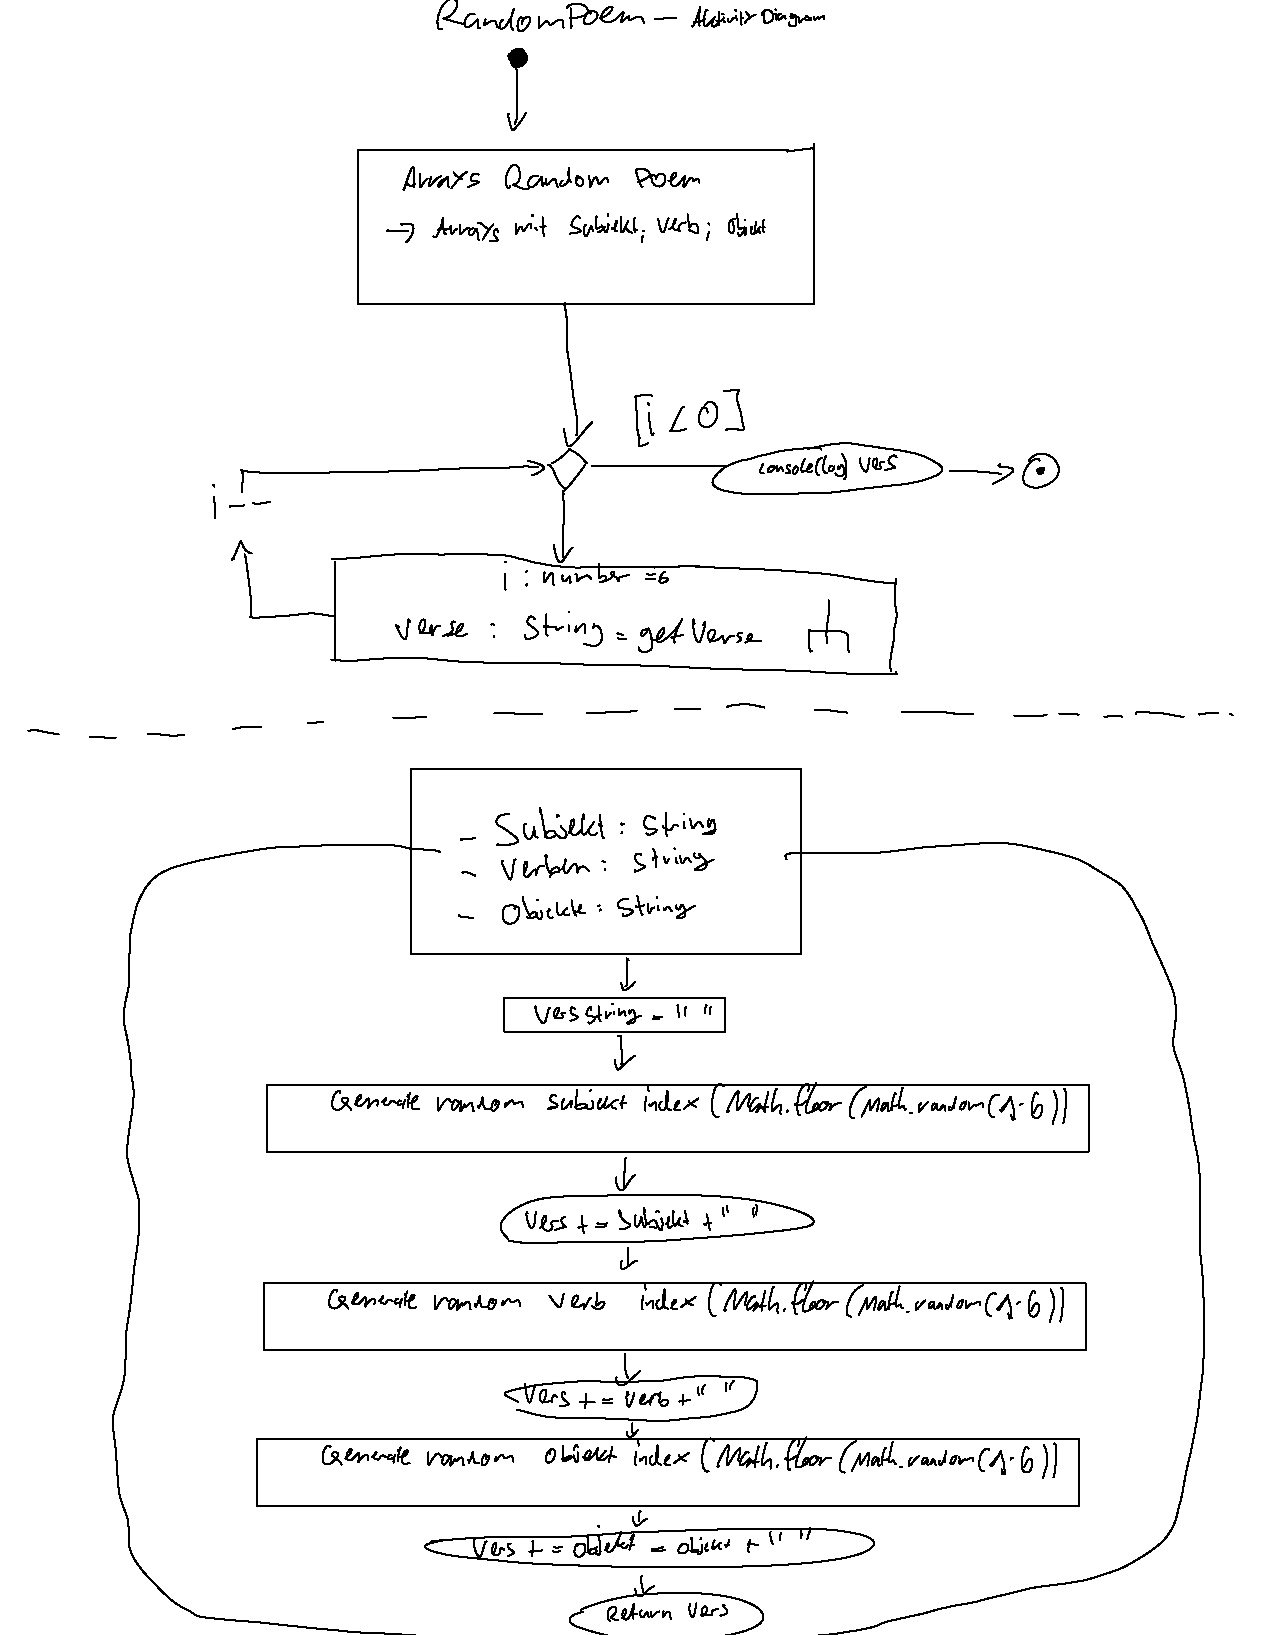 RandomPoem - Aktivity Diagram
Arrays Random Poem
→ Arrays mit Subjekt; Verb; Objekt
[i < 0]
console(log) Vers
i--
i : number = 6
verse : String = getVerse
- Subjekt : String
- Verben : String
- Objekte : String
Vers String = " "
Generate random subjekt index (Math.floor(Math.random(1·6))
Vers += Subjekt + " "
Generate random verb index (Math.floor(Math.random(1·6))
Vers += Verb + " "
Generate random objekt index (Math.floor(Math.random(1·6))
Vers += Objekt = objekt + " "
Return Vers